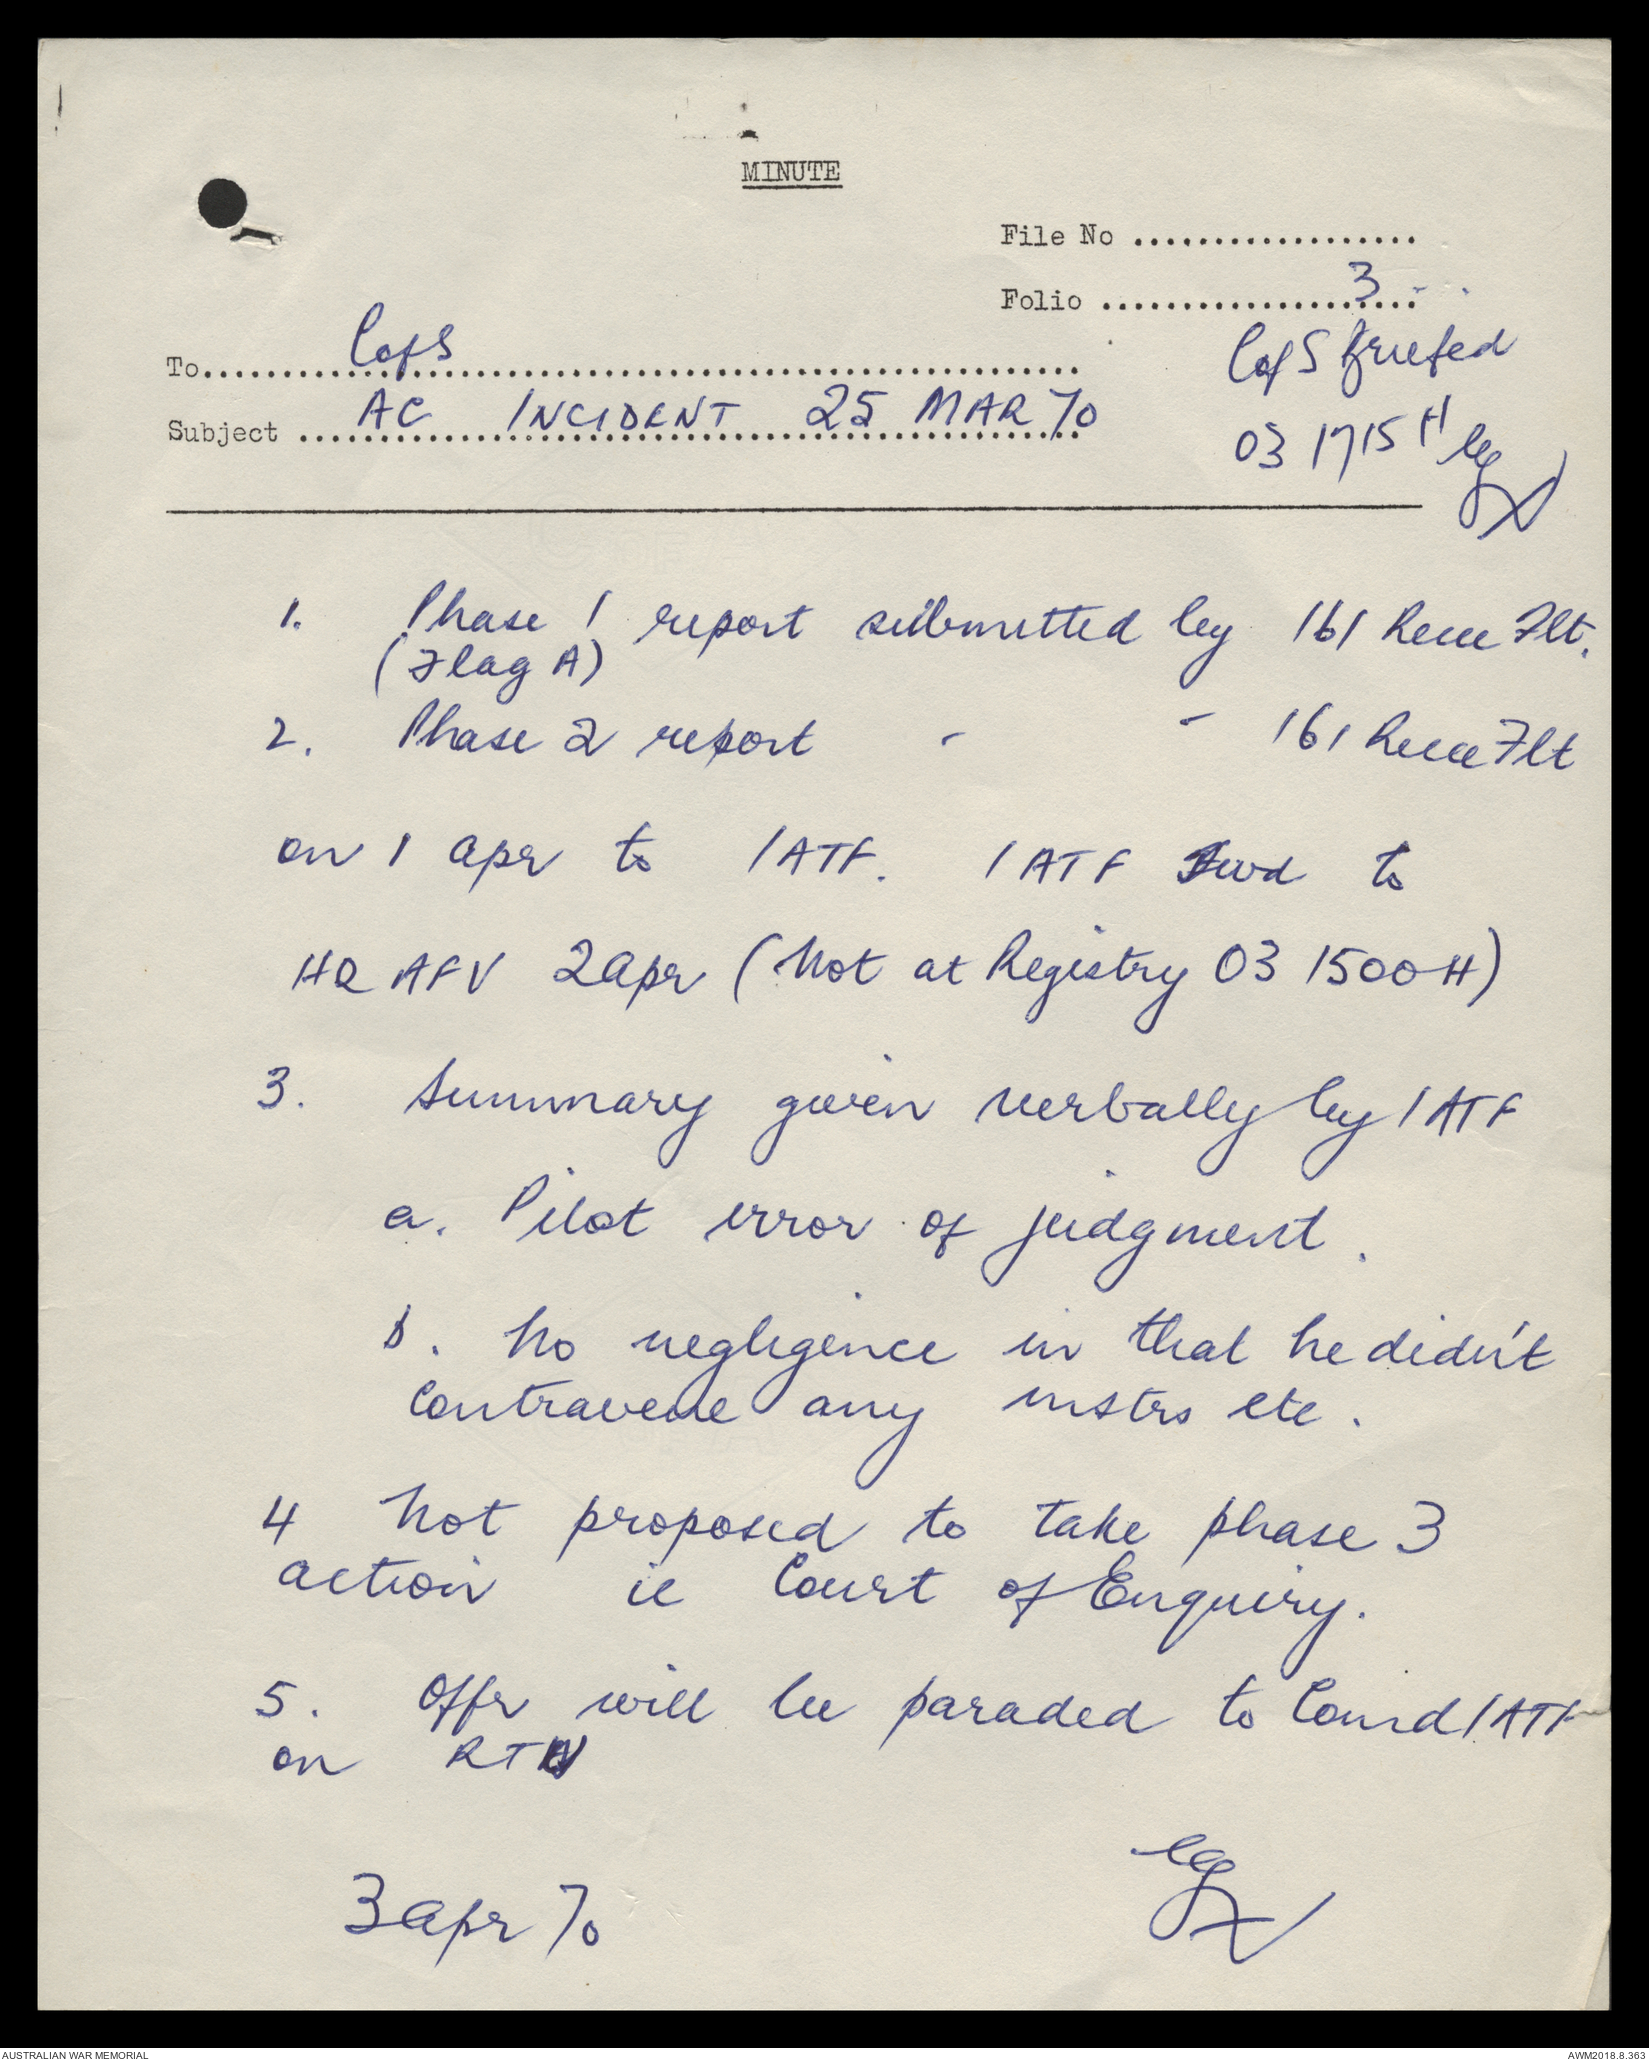 MINUTE
File No ..................
Folio ................3...
To........CofS........
Subject ...AC INCIDENT 25 MAR 70
CofS briefed
03 1715 H
1. Phase 1 report submitted by 161 Recce Flt.
(Flag A)
2. Phase 2 report - - 161 Recce Flt
on 1 Apr to 1 ATF. 1 ATF fwd to
HQ AFV 2 Apr (Not at Registry 03 1500H)
3. Summary given verbally by 1 ATF
a. Pilot error of judgment.
b. No negligence in that he didn't
contravene any instrs etc.
4 Not proposed to take phase 3
action ie Court of Enquiry.
5. Offr will be paraded to Comd 1 ATF
on RTN
3 Apr 70
AUSTRALIAN WAR MEMORIAL
AWM2018.8.363